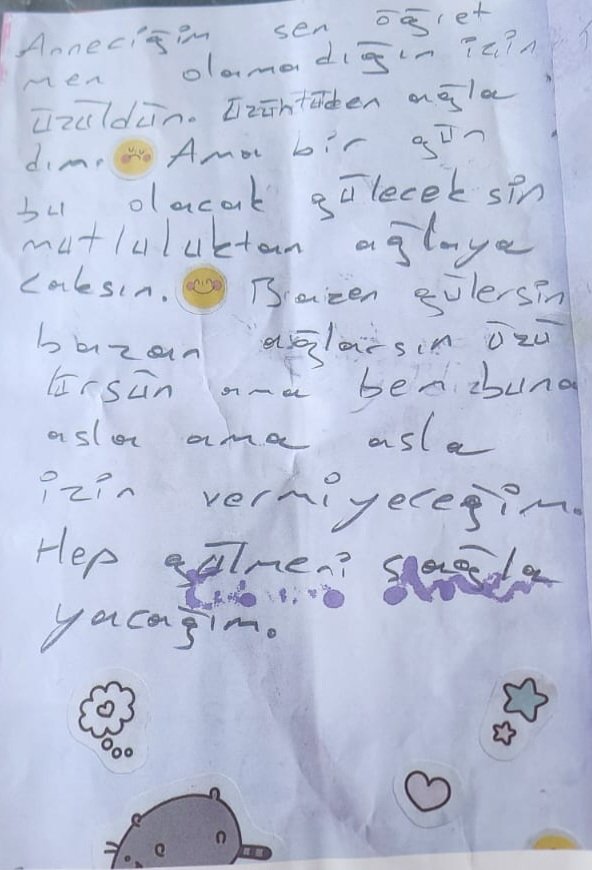 Anneciğim sen öğret
men olamadığın için
üzüldün. Üzüntüden ağla
dım. Ama bir gün
bu olacak gülecek sin
mutluluktan ağlaya
caksın. Bazen gülersin
bazan ağlarsın üzü
lürsün ama ben buna
asla ama asla
izin vermiyeceğim.
Hep gülmeni sağla
yacağım.